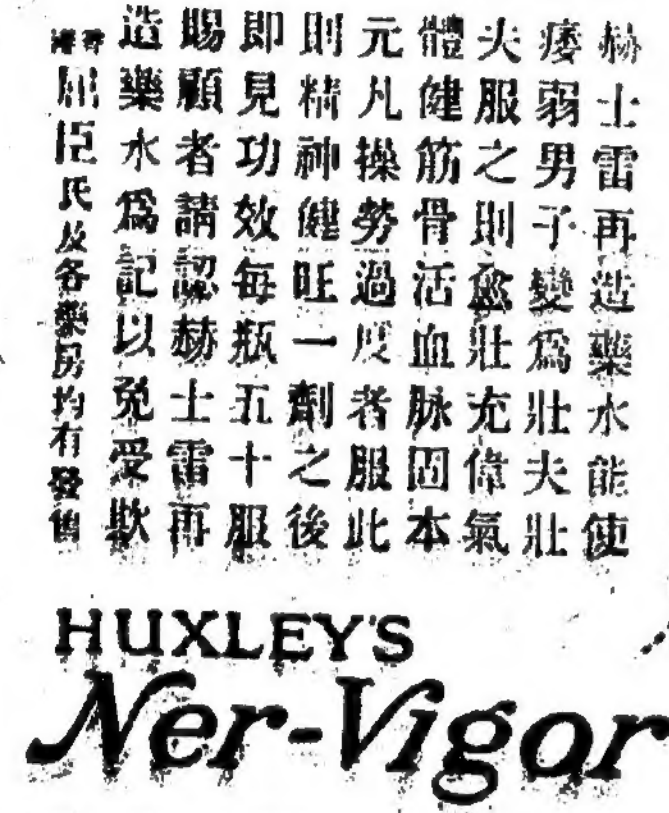 赫士雷再造藥水能使
痿弱男子變爲壯夫壯
夫服之則愈壯充偉氣
體健筋骨活血脉固本
元凡操勞過度者服此
則精神健旺一劑之後
即見功效每瓶五十服
賜顧者請認赫士雷再
造藥水爲記以免受欺
香港屈臣氏及各藥房均有發售
HUXLEY'S
Ner-Vigor